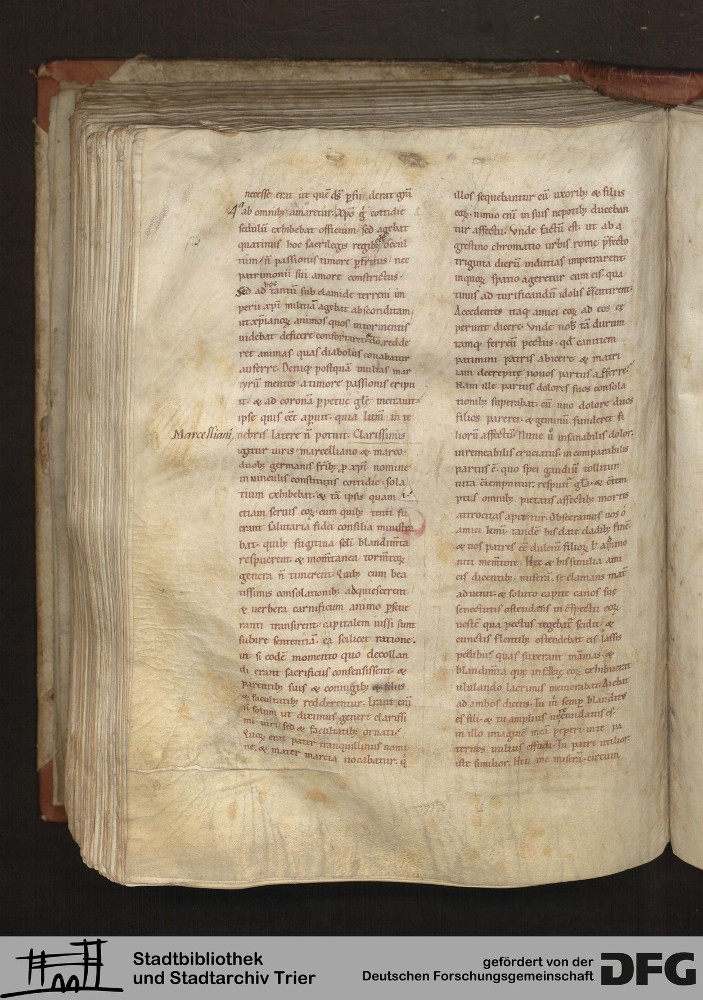 necesse erat ut quē dſ pfu derit grā
ab omnibꝫ amaretur. Xpo g cottidie
sedulū exhibebat officium. sed agebat
quatinus hoc sacrilegis regibꝫ occul
tum. n̄ passionis timore pritus. nec
patrimonii sui amore constrictus.
Sed ad hoc tantū sub clamide terreni im
perii xpi militiā agebat absconditam
ut xpianoꝝ animos quos in tormentis
videbat deficere confortaret. & dō redde
ret animas quas diabolus conabatur
auferre. Deniqꝫ postquā multas mar
tyrū mentes a timore passionis eripu
it. & ad coronā ppetue glē incitauit.
ipse quis eēt aputt. quia lum in te
Marcelliani
nebris latere n̄ potuit. Clarissimis
igitur uiris. marcelliano & marco.
duobꝫ germanis frībꝫ p xpi nomine
in uinculis constitutis cottidie. sola
tium exhibebat. & tā ipsis quam
etiam seruis eoꝝ. cum quibꝫ tenti fu
erant salutaria fidei consilia ministra
bat. quibꝫ fugitiua scli blandimta
respuerent. & momtanea tormtoꝝ
genera n̄ timerent. Quibꝫ cum bea
tissimis consolationibꝫ adquiescerent
& verbera carnificum animo pseue
ranti transirent. capitalem iussi sunt
subire sententiā. ea scilicet ratione.
ut si codē momento quo decollan
di erant sacrificiis consensissent. &
parentibꝫ suis & coniugibꝫ & filiis
& facultatibꝫ redderentur. Erant enī
n̄ solum ut diximus genere clarissi
mi uiri. sed & facultatibꝫ ornati.
Quoꝝ erat pater tranquillinus nomi
ne. & mater marcia uocabatur. q
illos sequebantur cū uxoribꝫ & filiis
eoꝝ. nimio enī in suis nepotibꝫ duceban
tur affectu. Unde factū est. ut ab a
grestino chromatio urbis rome pfecto
triginta dierū indutias impetrarent.
in quoꝝ spatio ageretur cum eis. qua
tinus ad turificandū idolis cōsentirent.
Accedentes itaqꝫ amici eoꝝ ad eos ce
perunt dicere. Unde nob tā durum
tamqꝫ ferreū pectus. qd canitiem
patimini patris abicere. & matri
iam decrepite nouos partus afferre.
Nam ille partus dolores suos consola
tionibꝫ superabat. cū uno dolore duos
filios pareret. & geminū funderet fi
liorū affectū. Nunc ū insanabilis dolor.
inremeabilis cruciatus. incomparabilis
partus ē. quo spei gaudiū tollitur
uita cōtempnitur. respuit glā. & cōtem
ptis omnibꝫ pietatis affectibꝫ mortis
atrocitas apetitur. Obsecramus uos o
amici kmi. tandē his date cladibꝫ finē
& uos patres eē dulciū filioꝝ
niti memtote. Hec & his similia ami
cis dicentibꝫ. misera se clamans mat
aduenit. & soluto capite canos sue
senectutis ostendens in cōspectu eoꝝ
uestē qua pectus tegebat scidit. &
cunctis flentibꝫ ostendebat eis lassis
pellibꝫ quas suxerant māmas. &
blandimta que infantes eoꝝ exhibuerint
ululando lacrimis memorabat. Aiebat
ad ambos dicens. Tu m semp blanditus
es fili. & tu amplius iocundatus es.
in illo imaginē meā peperi. in te pa
trios uultus effudi. Tu patri utilior
iste similior. Heu me miserā. circum
Stadtbibliothek
und Stadtarchiv Trier
gefördert von der
Deutschen Forschungsgemeinschaft
DFG